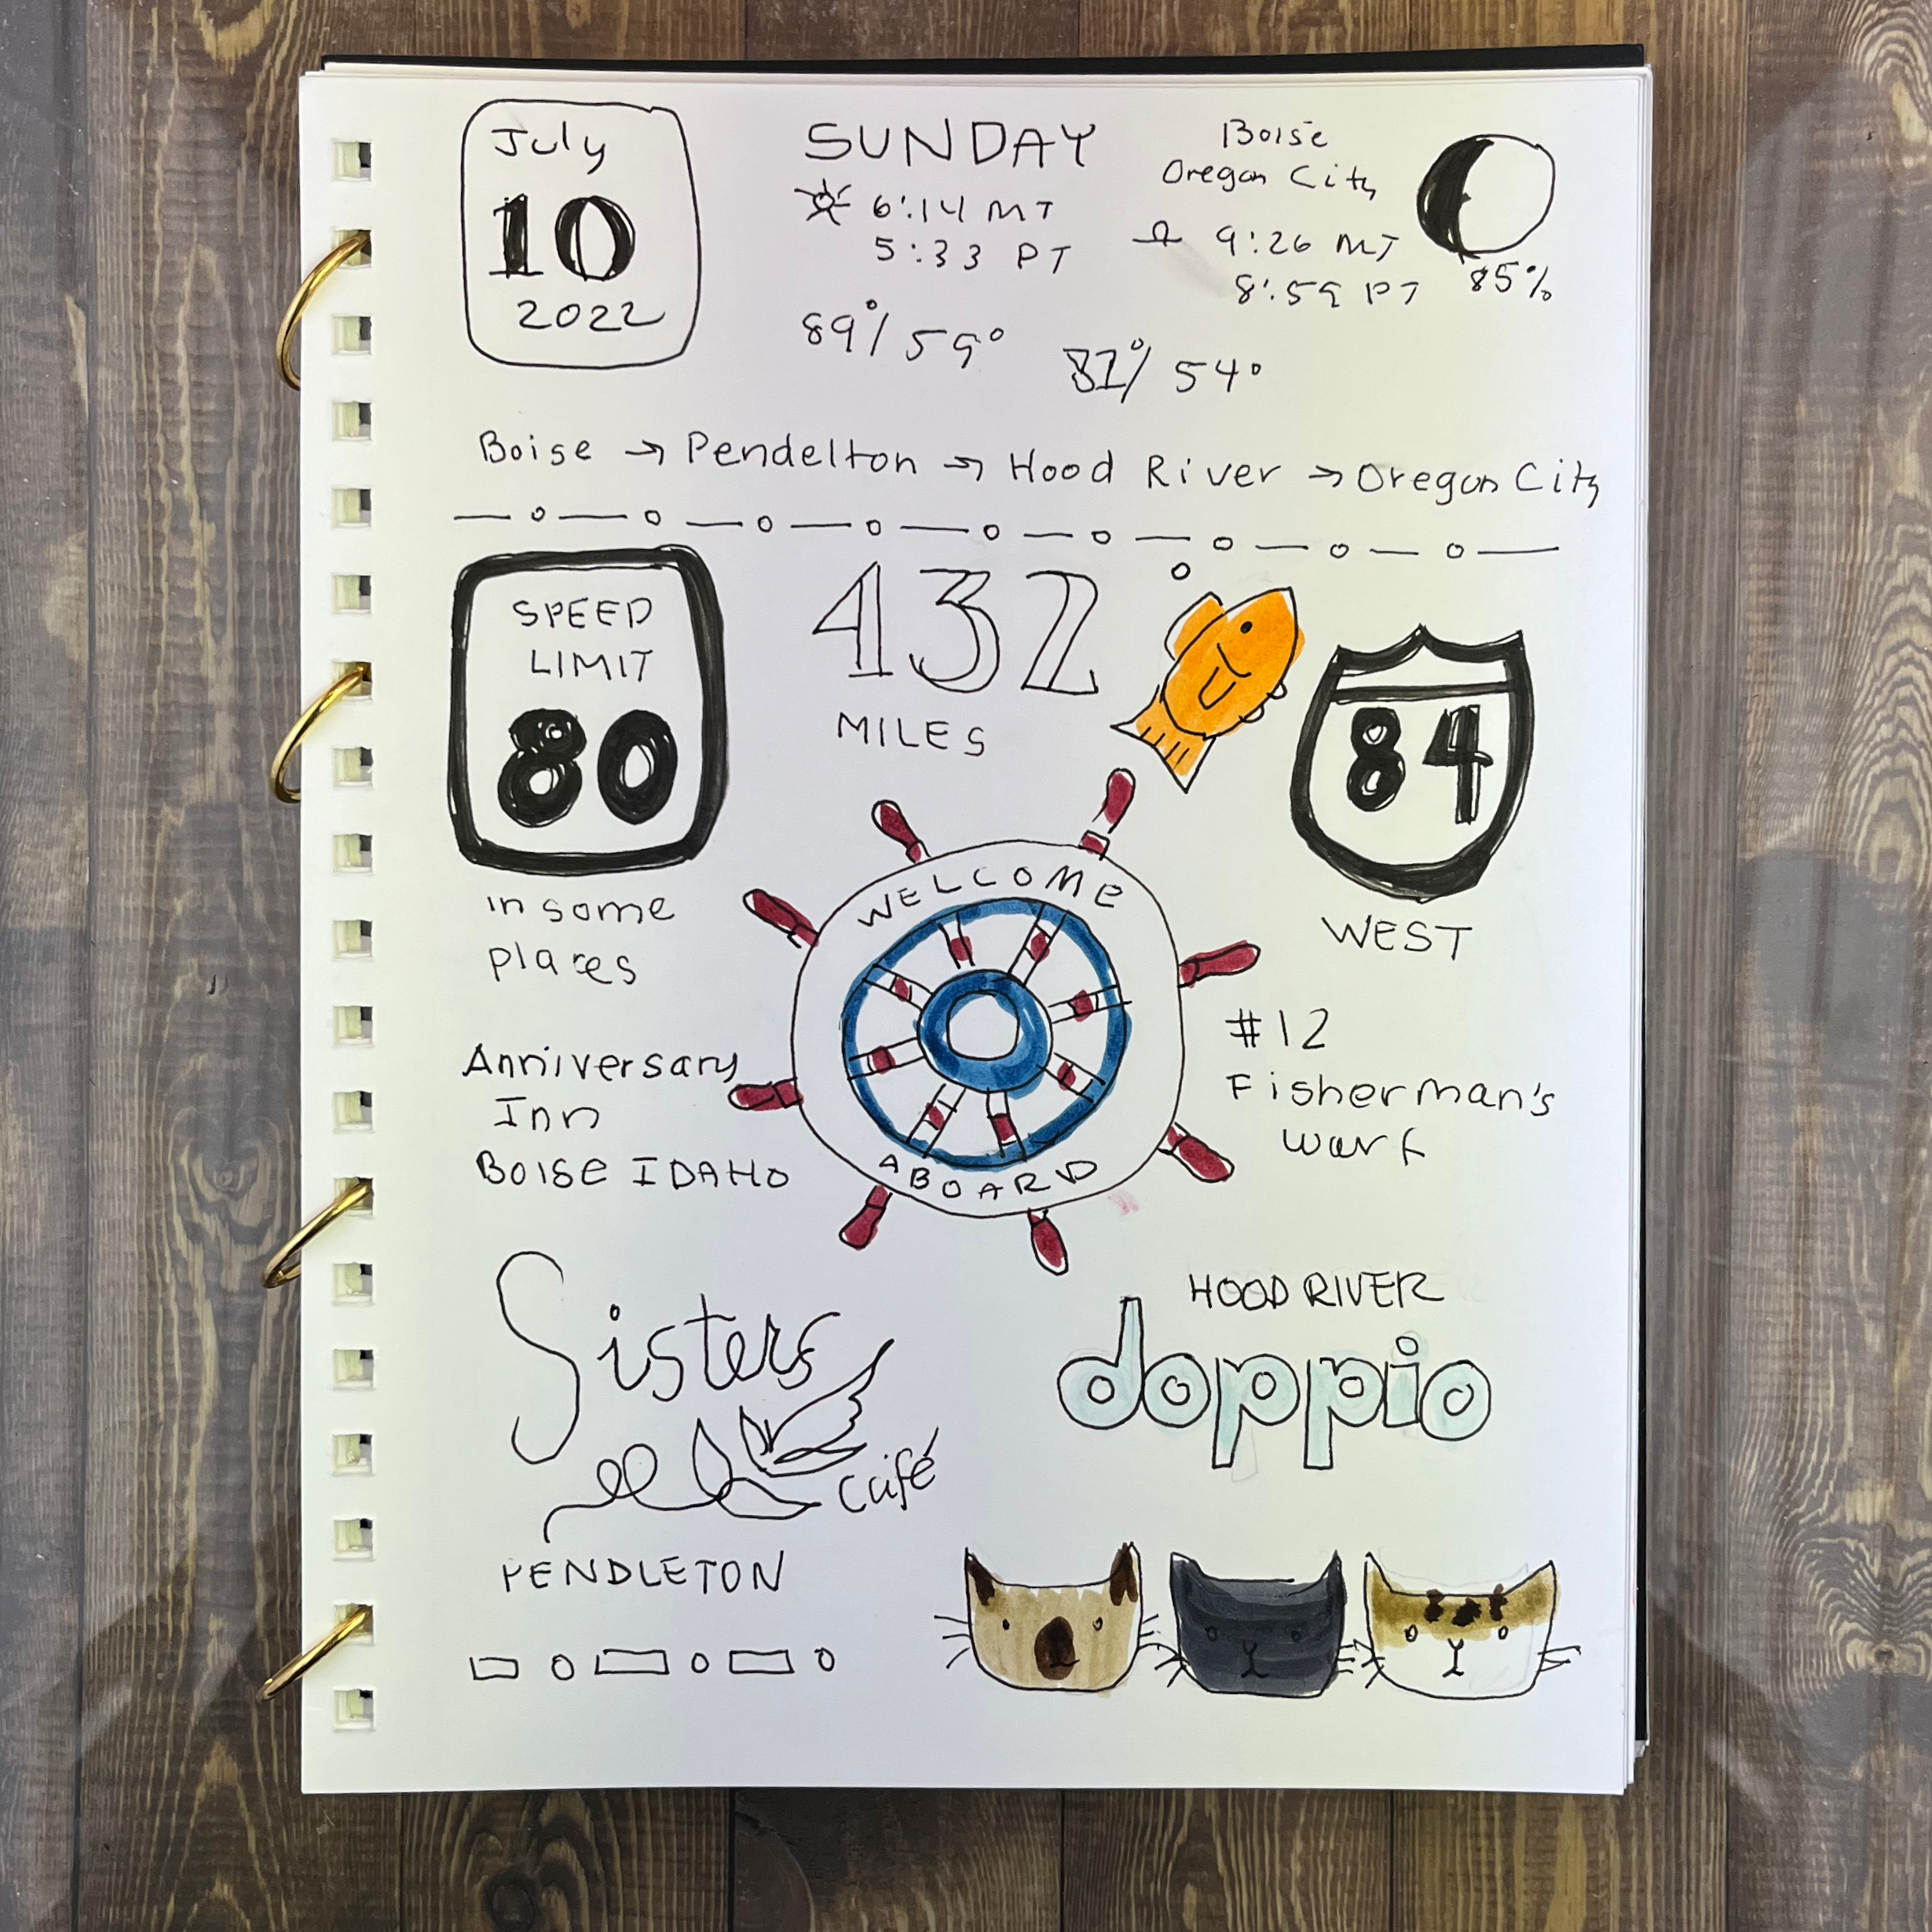 July
10
2022
SUNDAY
6:14 MT
5:33 PT
Boise
Oregon City
9:26 MT
8:59 PT
85%
89°/59°
81°/54°
Boise → Pendelton → Hood River → Oregon City
SPEED
LIMIT
80
in some
places
432
MILES
84
WEST
WELCOME
ABOARD
Anniversary
Inn
BOISE IDAHO
#12
Fisherman's
warf
Sisters
café
PENDLETON
HOOD RIVER
doppio